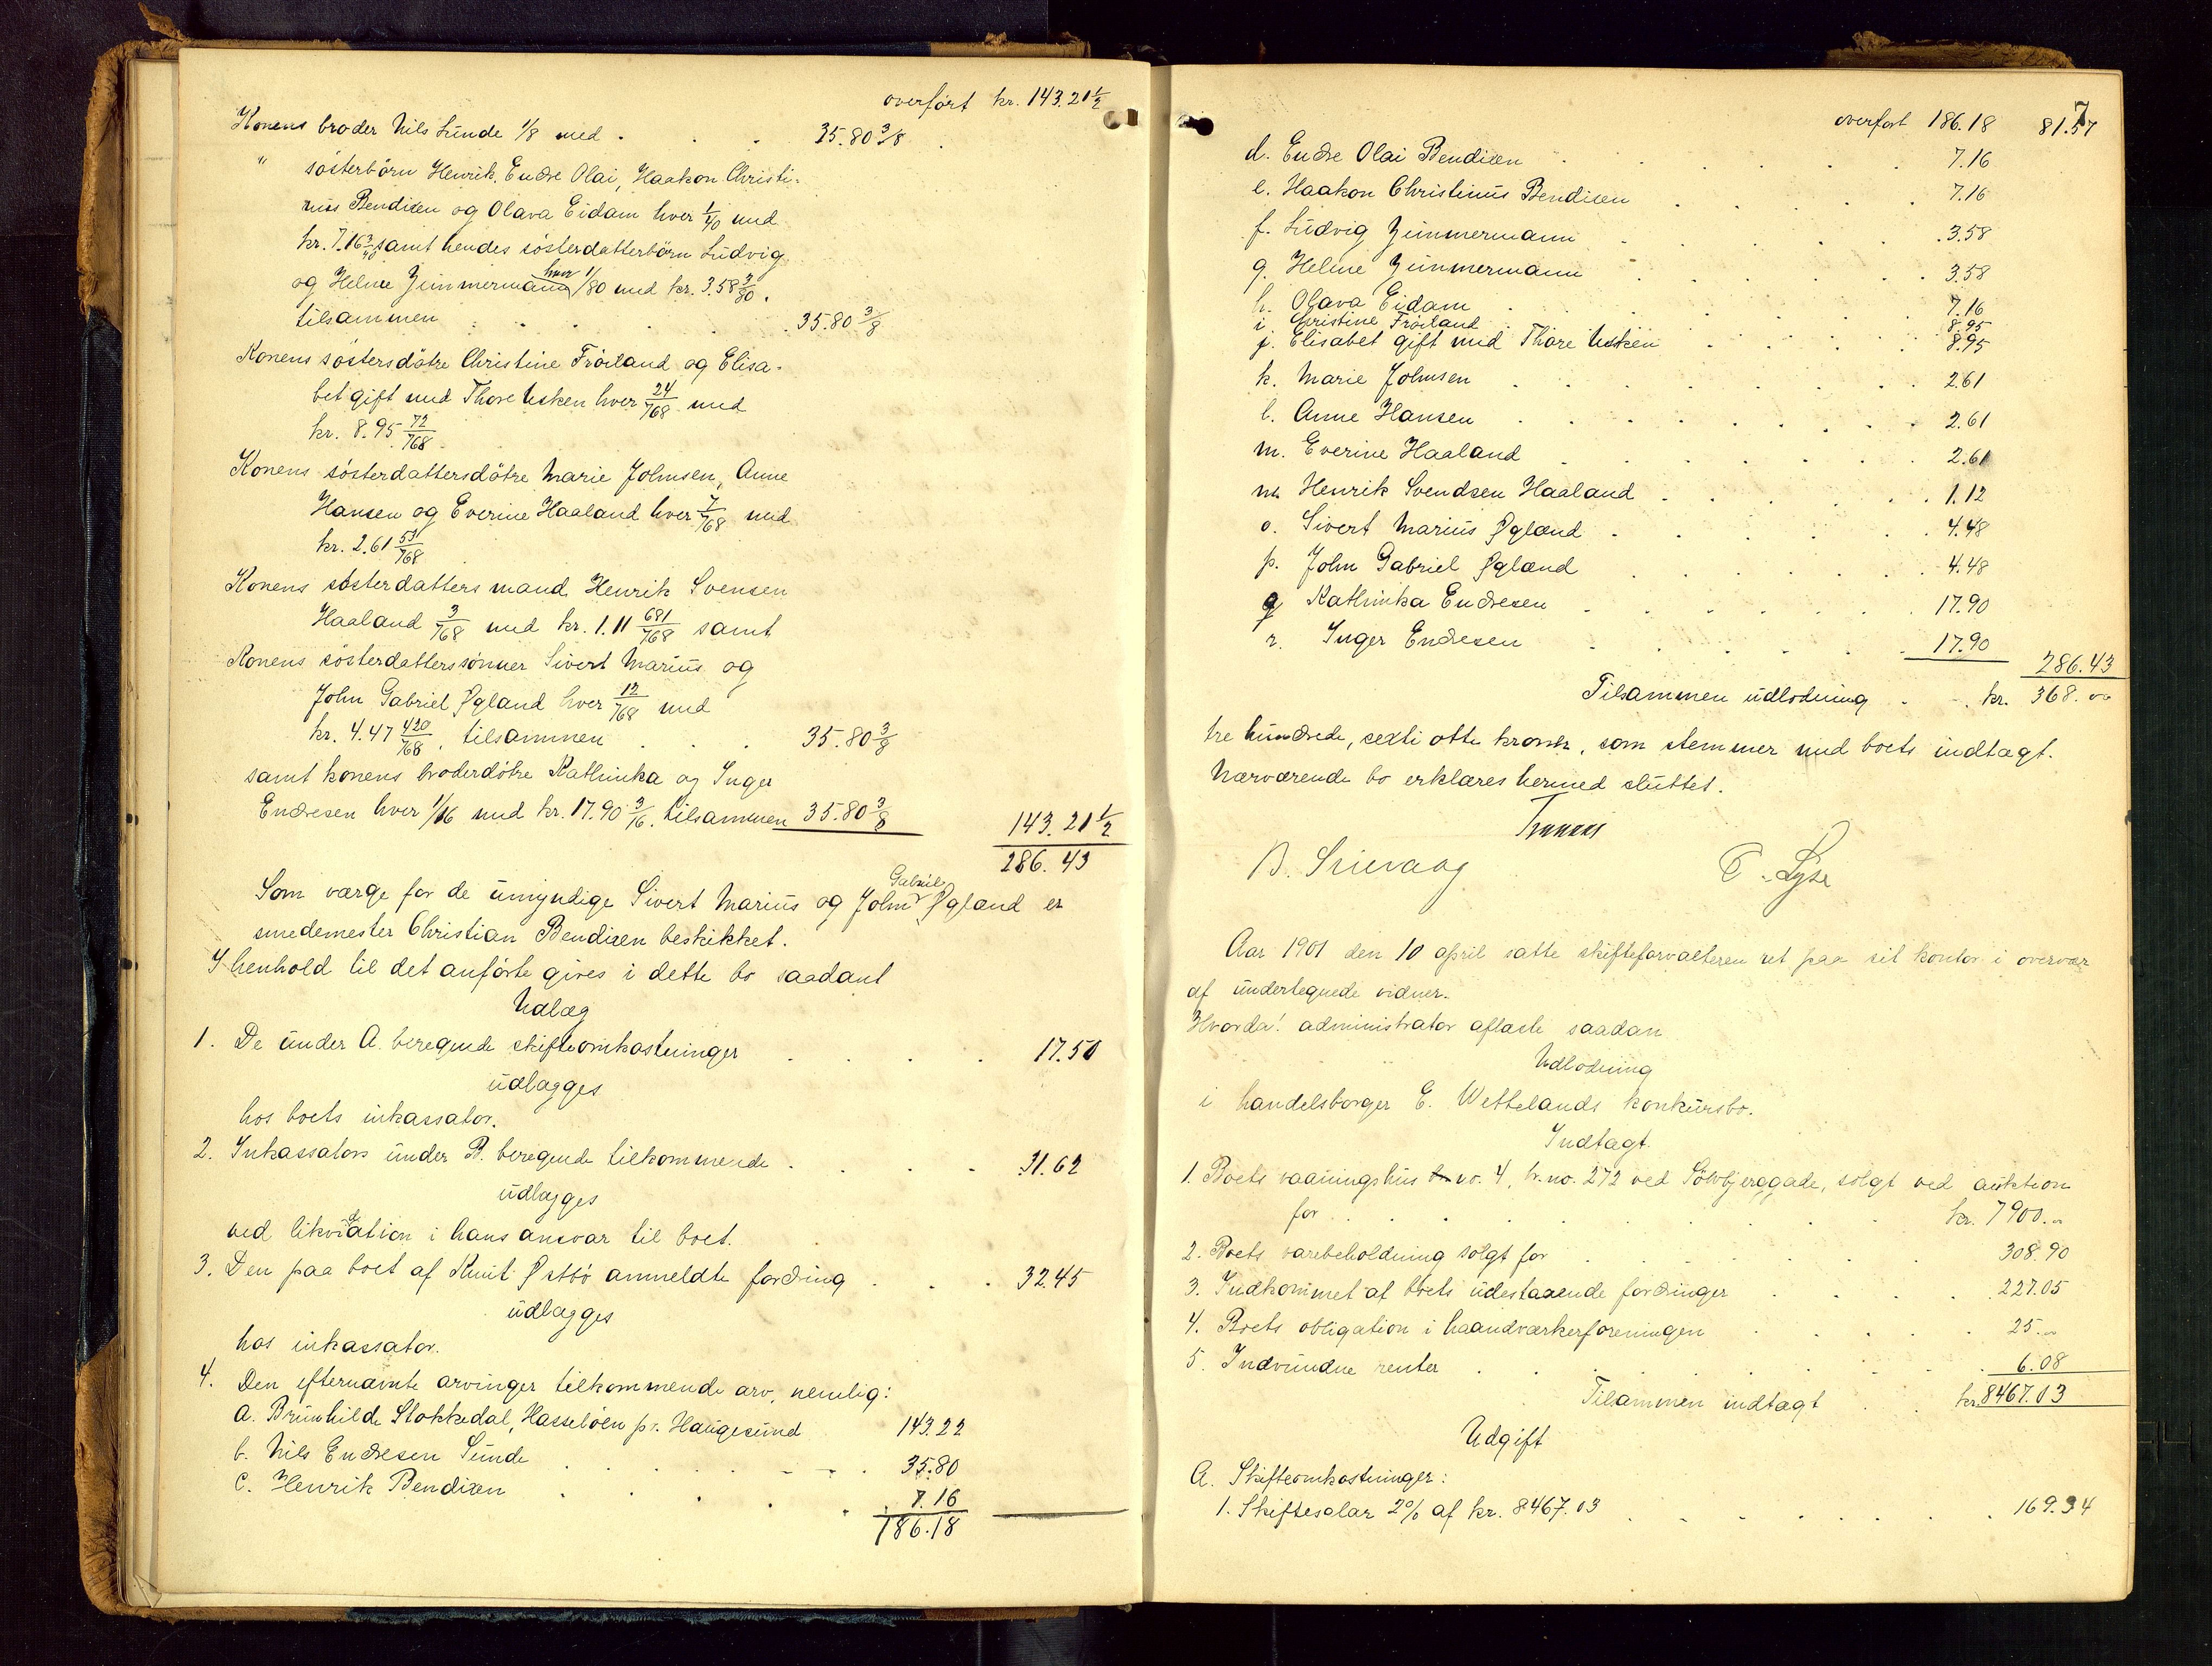 overført kr. 143.21 1/2
Konens broder Nils Sunde 1/8 med . . . 35.80 3/8
" søsterbørn Henrik, Endre Olai, Haakon Christi-
nus Bendixen og Olava Eidam hver 1/40 med
kr. 7.16 3/40 samt hendes søsterdatterbørn Ludvig
og Helene Zimmermann hver 1/80 med kr. 3.58 3/80.
tilsammen . . . . . 35.80 3/8
Konens søstersdøtre Christine Frøiland og Elisa-
bet gift med Thore Usken hver 24/768 med
kr. 8.95 72/768.
Konens søsterdattersdøtre Marie Johnsen, Anne
Hansen og Everine Haaland hver 7/768 med
kr. 2.61 53/768
Konens søsterdatters mand Henrik Svensen
Haaland 3/768 med kr. 1.11 681/768 samt
Konens søsterdatterssønner Sivert Marius og
John Gabriel Øgland hver 12/768 med
kr. 4.47 420/768, tilsammen . . . 35.80 3/8
samt konens broderdøtre Kathinka og Inger
Endresen hver 1/16 med kr. 17.90 3/16. tilsammen 35.80 3/8
143.21 1/2
286.43
Som værge for de umyndige Sivert Marius og John Gabriel Øgland er
smedemester Christian Bendixen beskikket.
I henhold til det anførte gives i dette bo saadant
Udlæg
1. De under A. beregnede skifteomkostninger . . . . 17.50
udlægges
hos boets inkassator.
2. Inkassators under B. beregnede tilkommende . . . . 31.62
udlægges
ved likvidation i hans ansvar til boet.
3. Den paa boet af Knut Østbø anmeldte fordring . . . 32.45
udlægges
hos inkassator.
4. Den efternævnte arvinger tilkommende arv, nemlig:
a. Brunhilde Stokkedal, Hasseløen pr. Haugesund 143.22
b. Nils Endresen Sunde . . . . 35.80
c. Henrik Bendixen . . . . 7.16
186.18
7
overført 186.18 81.57
d. Endre Olai Bendixen . . . . 7.16
e. Haakon Christinus Bendixen . . . . 7.16
f. Ludvig Zimmermann . . . . 3.58
g. Helene Zimmermann . . . . 3.58
h. Olava Eidam . . . . 7.16
i. Christine Frøiland . . . . 8.95
j. Elisabet gift med Thore Usken . . . . 8.95
k. Marie Johnsen . . . . 2.61
l. Anne Hansen . . . . 2.61
m. Everine Haaland . . . . 2.61
n. Henrik Svendsen Haaland . . . . 1.12
o. Sivert Marius Øgland . . . . 4.48
p. John Gabriel Øgland . . . . 4.48
q Kathinka Endresen . . . . 17.90
r. Inger Endresen . . . . 17.90
286.43
Tilsammen udlodning . . kr. 368.00
tre hundrede, sexti otte kroner, som stemmer med boets indtægt.
Nærværende bo erklæres hermed sluttet.
T. Lyse
Aar 1901 den 10 april satte skifteforvalteren ret paa sit kontor i overvær
af undertegnede vidner.
Hvorda! administrator aflagte saadan
Udlodning
i handelsborger E. Wettelands konkursbo.
Indtægt.
1. Boets vaaningshus no. 4, br.no. 272 ved Sølvbjerggade, solgt ved auktion
for . . . . kr. 7900.00
2. Boets varebeholdning solgt for . . . . 308.90
3. Indkommet af boets udestaaende fordringer . . . . 227.05
4. Boets obligation i haandværkerforeningen . . . . 25.00
5. Indvundne renter . . . . 6.08
Tilsammen indtægt . . kr. 8467.03
Udgift
A. Skifteomkostninger:
1. Skiftesalær 2% af kr. 8467.03 . . . . 169.34